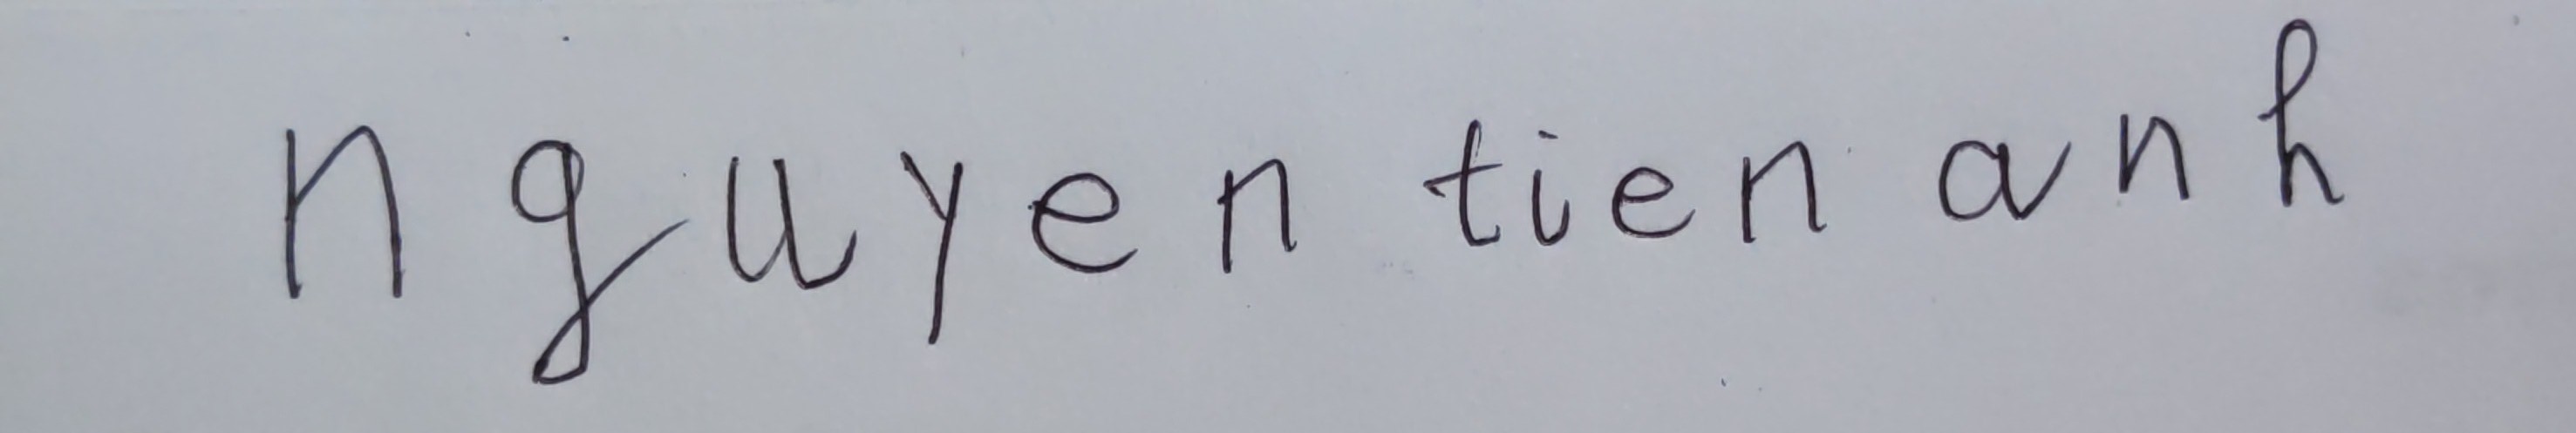 nguyen tien anh